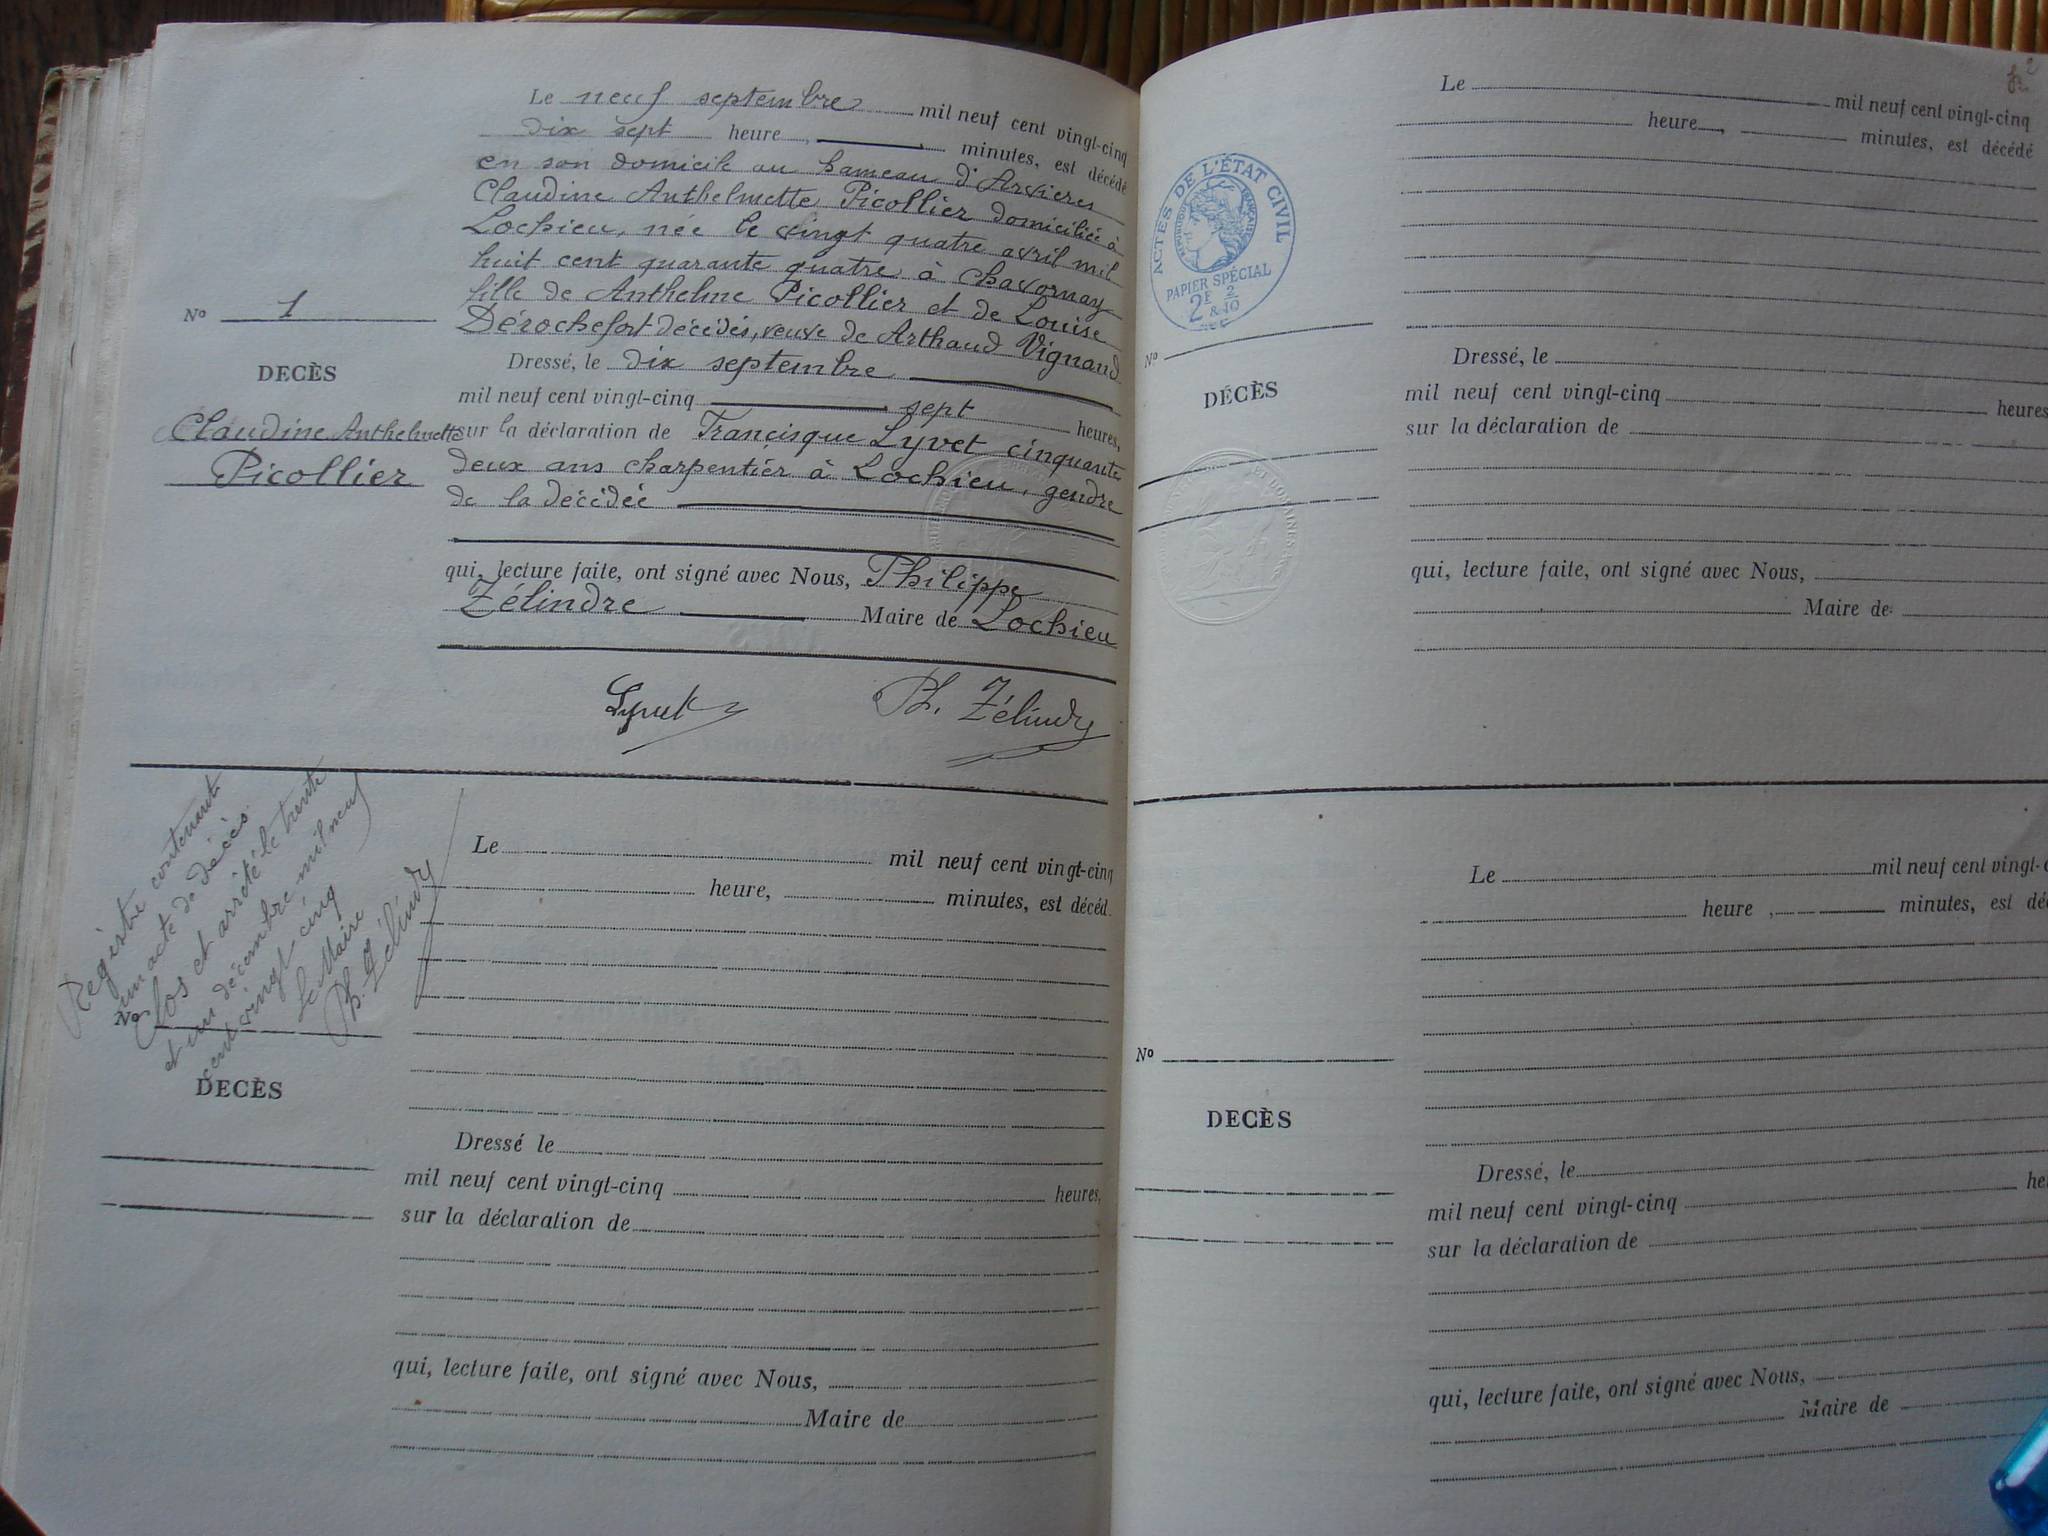 Le neuf septembre mil neuf cent vingt-cinq
dix sept heure, minutes, est décédé
en son domicile au hameau d'Arvières
Claudine Anthelmette Picollier domiciliée à
Lochieu, née le vingt quatre avril mil
huit cent quarante quatre à Chavornay
fille de Anthelme Picollier et de Louise
Dérochefort décédés, veuve de Arthaud Vignand
Nº 1
DECÈS
Claudine Anthelmette
Picollier
Dressé, le dix septembre
mil neuf cent vingt-cinq sept heures,
sur la déclaration de Françisque Lyvet cinquante
deux ans charpentier à Lochieu, gendre
de la décédée
qui, lecture faite, ont signé avec Nous, Philippe
Zélindre Maire de Lochieu
Lyvet Ph. Zélindre
Registre contenant
un acte de décès
Clos et arrêté le trente
et un décembre mil neuf
cent vingt-cinq
Le Maire
Ph. Zélindre
Nº
DECÈS
Le mil neuf cent vingt-cinq
heure, minutes, est décéd
Dressé le
mil neuf cent vingt-cinq heures,
sur la déclaration de
qui, lecture faite, ont signé avec Nous,
Maire de
2
ACTES DE L'ÉTAT CIVIL
RÉPUBLIQUE FRANÇAISE
PAPIER SPÉCIAL
2F 2
& 10
Le mil neuf cent vingt-cinq
heure, minutes, est décédé
Nº
DÉCÈS
Dressé, le
mil neuf cent vingt-cinq heures
sur la déclaration de
qui, lecture faite, ont signé avec Nous,
Maire de
Le mil neuf cent vingt-c
heure, minutes, est dé
Nº
DECÈS
Dressé, le
mil neuf cent vingt-cinq he
sur la déclaration de
qui, lecture faite, ont signé avec Nous,
Maire de